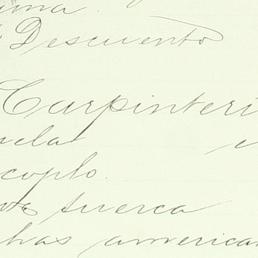 Descuento
Carpinteri
uela
coplo.
tuerca
has american